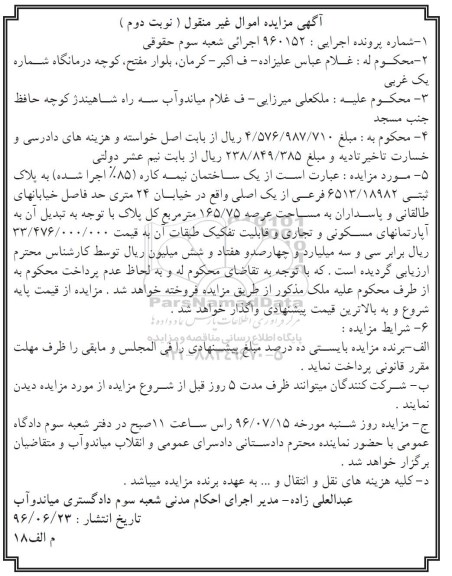 آگهی مزایده اموال غیر منقول ( نوبت دوم )
۱-شماره پرونده اجرایی : ۹۶۰۱۵۲ اجرائی شعبه سوم حقوقی
۲-محکـوم له : غـلام عباس علیزاده- ف اکبر- کرمان, بلوار مفتح, کوچه درمانگاه شـماره
یک غربی
۳- محکـوم علیـه : ملکعلی میرزایی- ف غلام میاندوآب سـه راه شـاهیندژ کوچه حافظ
جنب مسجد
۴- محکوم به : مبلغ ۴/۵۷۶/۹۸۷/۷۱۰ ریال از بابت اصل خواسته و هزینه های دادرسی و
خسارت تاخیر تادیه و مبلغ ۲۳۸/۸۴۹/۳۸۵ ریال از بابت نیم عشر دولتی
۵- مـورد مزایده : عبارت اسـت از یک سـاختمان نیمـه کاره (۸۵٪ اجرا شـده) به پلاک
ثبتـی ۶۵۱۳/۱۸۹۸۲ فرعـی از یک اصلی واقع در خیابـان ۲۴ متری حد فاصل خیابانهای
طالقانی و پاسـداران به مسـاحت عرصه ۱۶۵/۷۵ مترمربع کل پلاک با توجه به تبدیل آن به
آپارتمانهای مسـکونی و تجاری و قابلیت تفکیک طبقات آن به قیمت ۳۳/۴۷۶/۰۰۰/۰۰۰
ریال برابر سی و سه میلیارد و چهارصدو هفتاد و شش میلیون ریال توسط کارشناس محترم
ارزیابی گردیده است . که با توجه به تقاضای محکوم له و به لحاظ عدم پرداخت محکوم به
از طرف محکوم علیه ملک مذکور از طریق مزایده فروخته خواهد شد . مزایده از قیمت پایه
شروع و به بالاترین قیمت پیشنهادی واگذار خواهد شد .
۶- شرایط مزایده :
الف-برنده مزایده بایسـتی ده درصد مبلغ پیشـنهادی را فی المجلس و مابقی را ظرف مهلت
مقرر قانونی پرداخت نماید .
ب- شـرکت کنندگان میتوانند ظرف مدت ۵ روز قبل از شـروع مزایده از مورد مزایده دیدن
نمایند .
ج- مزایده روز شـنبه مورخه ۹۶/۰۷/۱۵ راس سـاعت ۱۱صبح در دفتر شعبه سوم دادگاه
عمومی با حضور نماینده محترم دادسـتانی دادسرای عمومی و انقلاب میاندوآب و متقاضیان
برگزار خواهد شد .
د- کلیه هزینه های نقل و انتقال و ... به عهده برنده مزایده میباشد .
عبدالعلی زاده- مدیر اجرای احکام مدنی شعبه سوم دادگستری میاندوآب
تاریخ انتشار : ۹۶/۰۶/۲۳
م الف۱۸